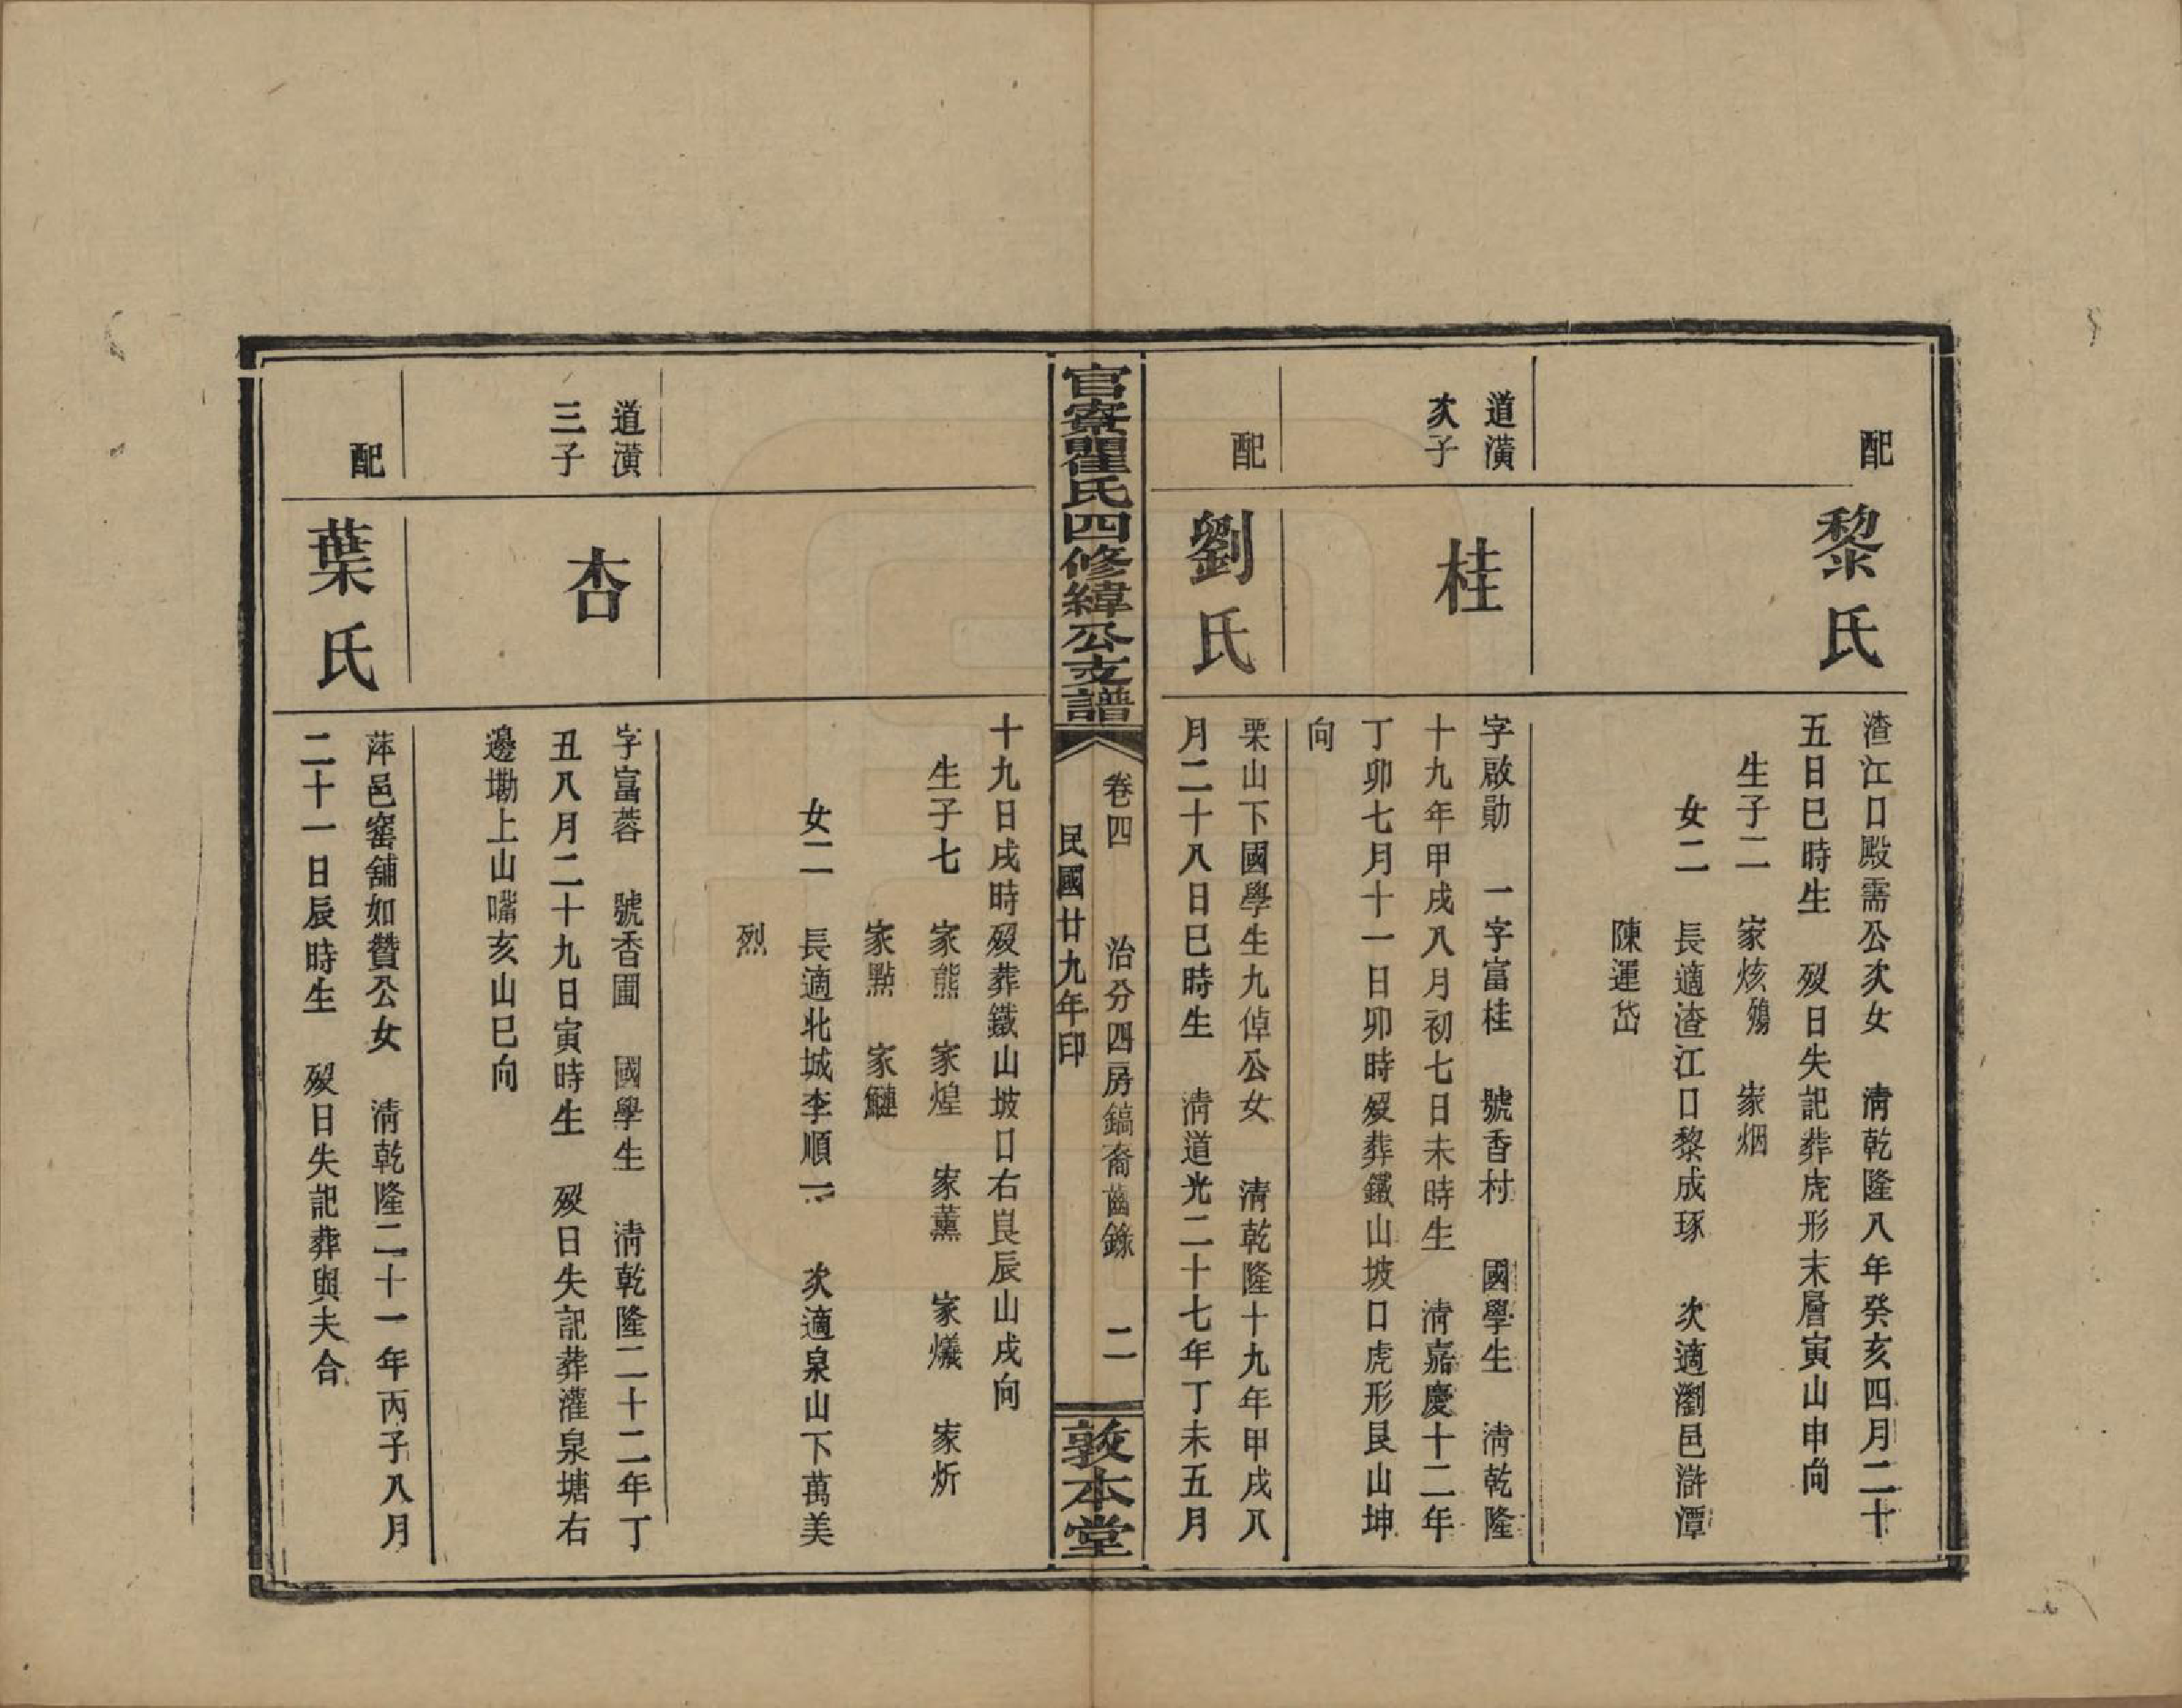 配
黎氏
渣江口殿需公次女　淸乾隆八年癸亥四月二十
五日巳時生　歿日失記葬虎形末層寅山申向
生子二　家烗殤　家烟
女二　長適渣江口黎成琢　次適瀏邑滸潭
陳運岱
道潢
次子
桂
字啟勛　一字富桂　號香村　國學生　淸乾隆
十九年甲戌八月初七日未時生　淸嘉慶十二年
丁卯七月十一日卯時歿葬鐵山坡口虎形艮山坤
向
配
劉氏
栗山下國學生九倬公女　淸乾隆十九年甲戌八
月二十八日巳時生　淸道光二十七年丁未五月
官寮瞿氏四修緯公支譜
卷四　治分四房鎬裔齒錄　二
民國廿九年印
敦本堂
十九日戌時歿葬鐵山坡口右崀辰山戌向
生子七　家熊　家煌　家薰　家爔　家炘
家點　家鰱
女二　長適北城李順一　次適泉山下萬美
烈
道潢
三子
杏
字富蓉　號香圃　國學生　淸乾隆二十二年丁
丑八月二十九日寅時生　歿日失記葬灌泉塘右
邊墈上山嘴亥山巳向
配
葉氏
萍邑窰舖如贊公女　淸乾隆二十一年丙子八月
二十一日辰時生　歿日失記葬與夫合